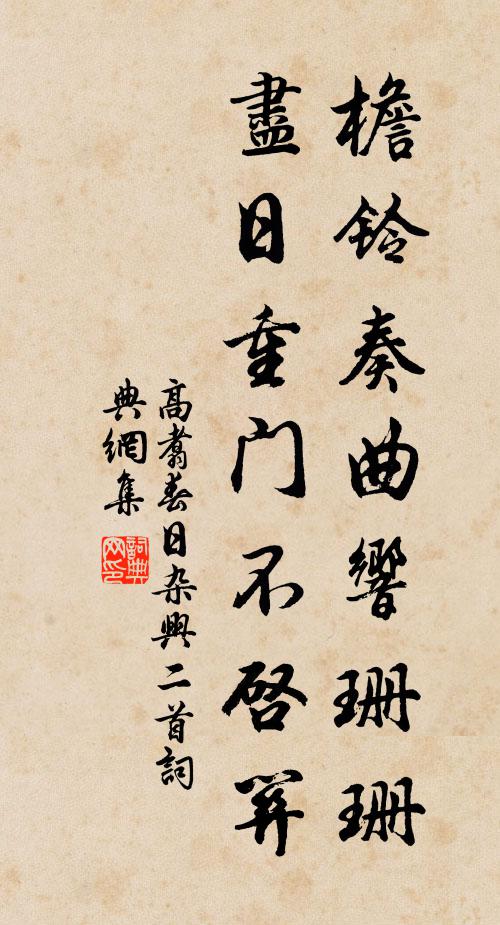 檐鈴奏曲響珊珊
盡日重門不啓關
高翥春日杂興二首詞
典網集
詞典
网印